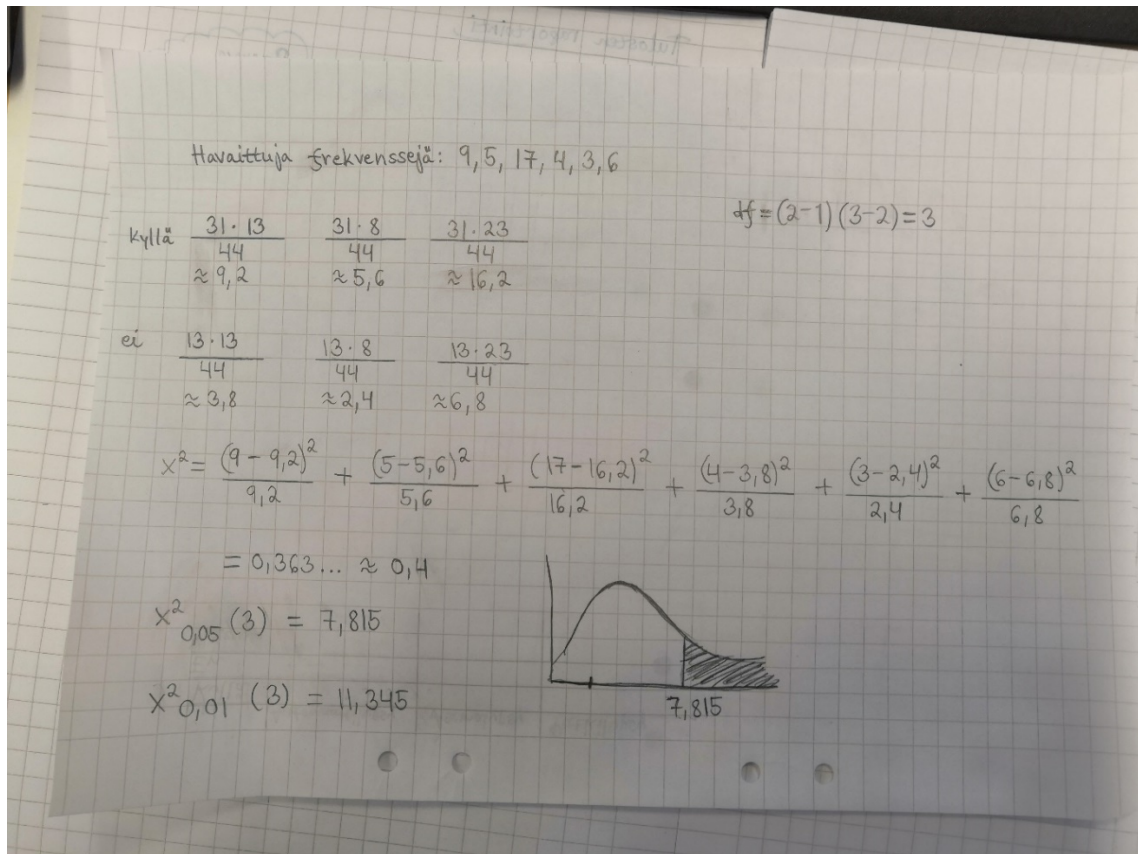 Havaittuja frekvenssejä: 9, 5, 17, 4, 3, 6
df = (2-1) (3-2) = 3
kyllä 31·13/44 31·8/44 31·23/44
≈ 9,2 ≈ 5,6 ≈ 16,2
ei 13·13/44 13·8/44 13·23/44
≈ 3,8 ≈ 2,4 ≈ 6,8
x² = (9 - 9,2)²/9,2 + (5-5,6)²/5,6 + (17-16,2)²/16,2 + (4-3,8)²/3,8 + (3-2,4)²/2,4 + (6-6,8)²/6,8
= 0,363... ≈ 0,4
x²0,05 (3) = 7,815
x²0,01 (3) = 11,345
7,815